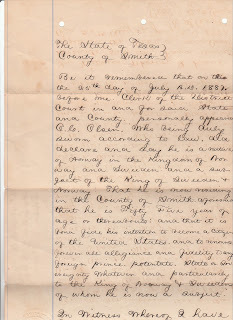 The State of Texas }
County of Smith }
Be it remembered that on this
the 25th day of July A.D. 1887
before me Clerk of the District
Court in and for said State
and County personally appeared
Olson who being duly
sworn according to law,
declare and say he is a native
of Norway in the Kingdom of Nor
way and Sweden and a sub
ject of the King of Sweden &
Norway That he is now residing
in the County of Smith aforesaid
that he is Fifty Five years of
age or thereabouts and that it is
bona fide his intention to become a citizen
of the United States, and to renounce
forever all allegiance and fidelity to any
foreign prince potentate, State or Sov
ereignty whatever and particularly
to the King of Norway & Sweden
of whom he is now a subject.
In Witness Whereof I have